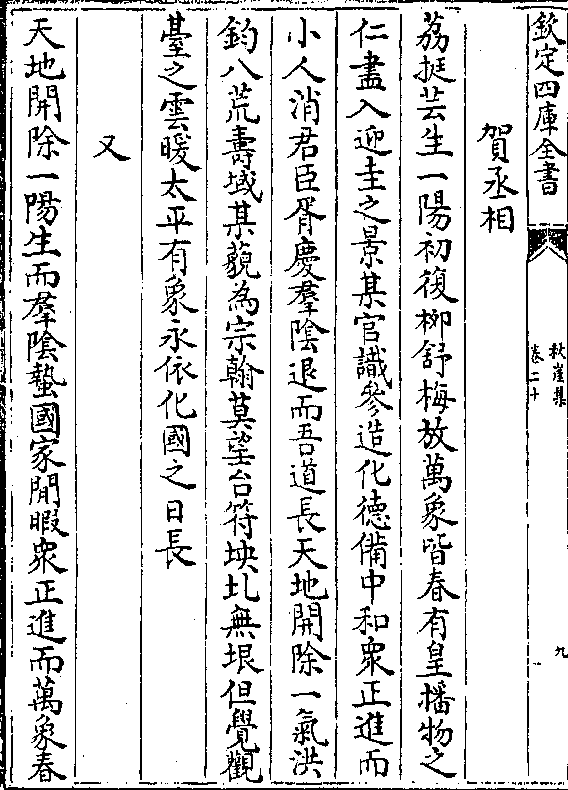 欽定四庫全書
秋崖集
卷二十
九
賀丞相
荔挺芸生一陽初復柳舒梅放萬象皆春有皇播物之
仁盡入迎圭之景某官識參造化德備中和衆正進而
小人消君臣胥慶羣陰退而吾道長天地開除一氣洪
鈞八荒壽域某藐為宗翰莫望台符坱圠無垠但覺觀
臺之雲暖太平有象永依化國之日長
又
天地開除一陽生而羣陰蟄國家閒暇衆正進而萬象春